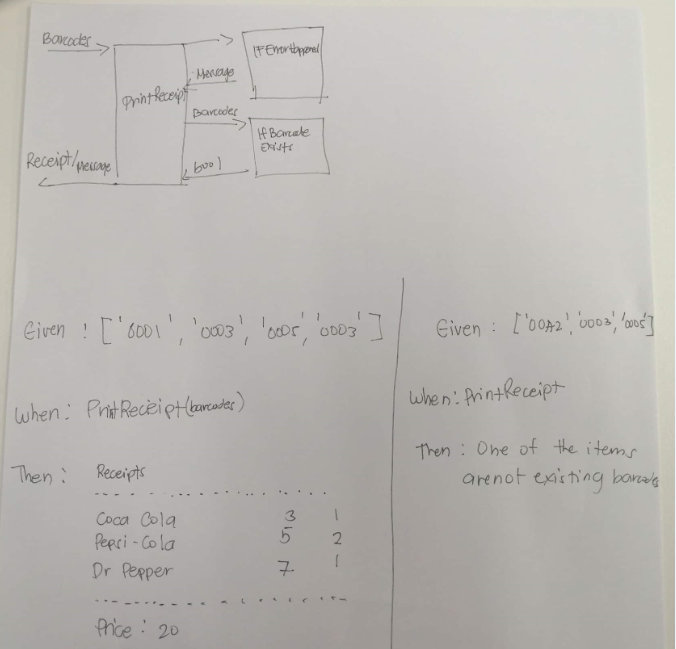 Barcodes
IfErrorHappened
Message
PrintReceipt
Barcodes
If Barcode
Exists
Receipt/Message
bool
Given : ['0001', '0003', '0005', '0003']
When: PrintReceipt(barcodes)
Then: Receipts
Coca Cola 3 1
Pepsi-Cola 5 2
Dr Pepper 7 1
Price : 20
Given : ['00A2', '0003', '0005']
When: PrintReceipt
Then : One of the items
are not existing barcode